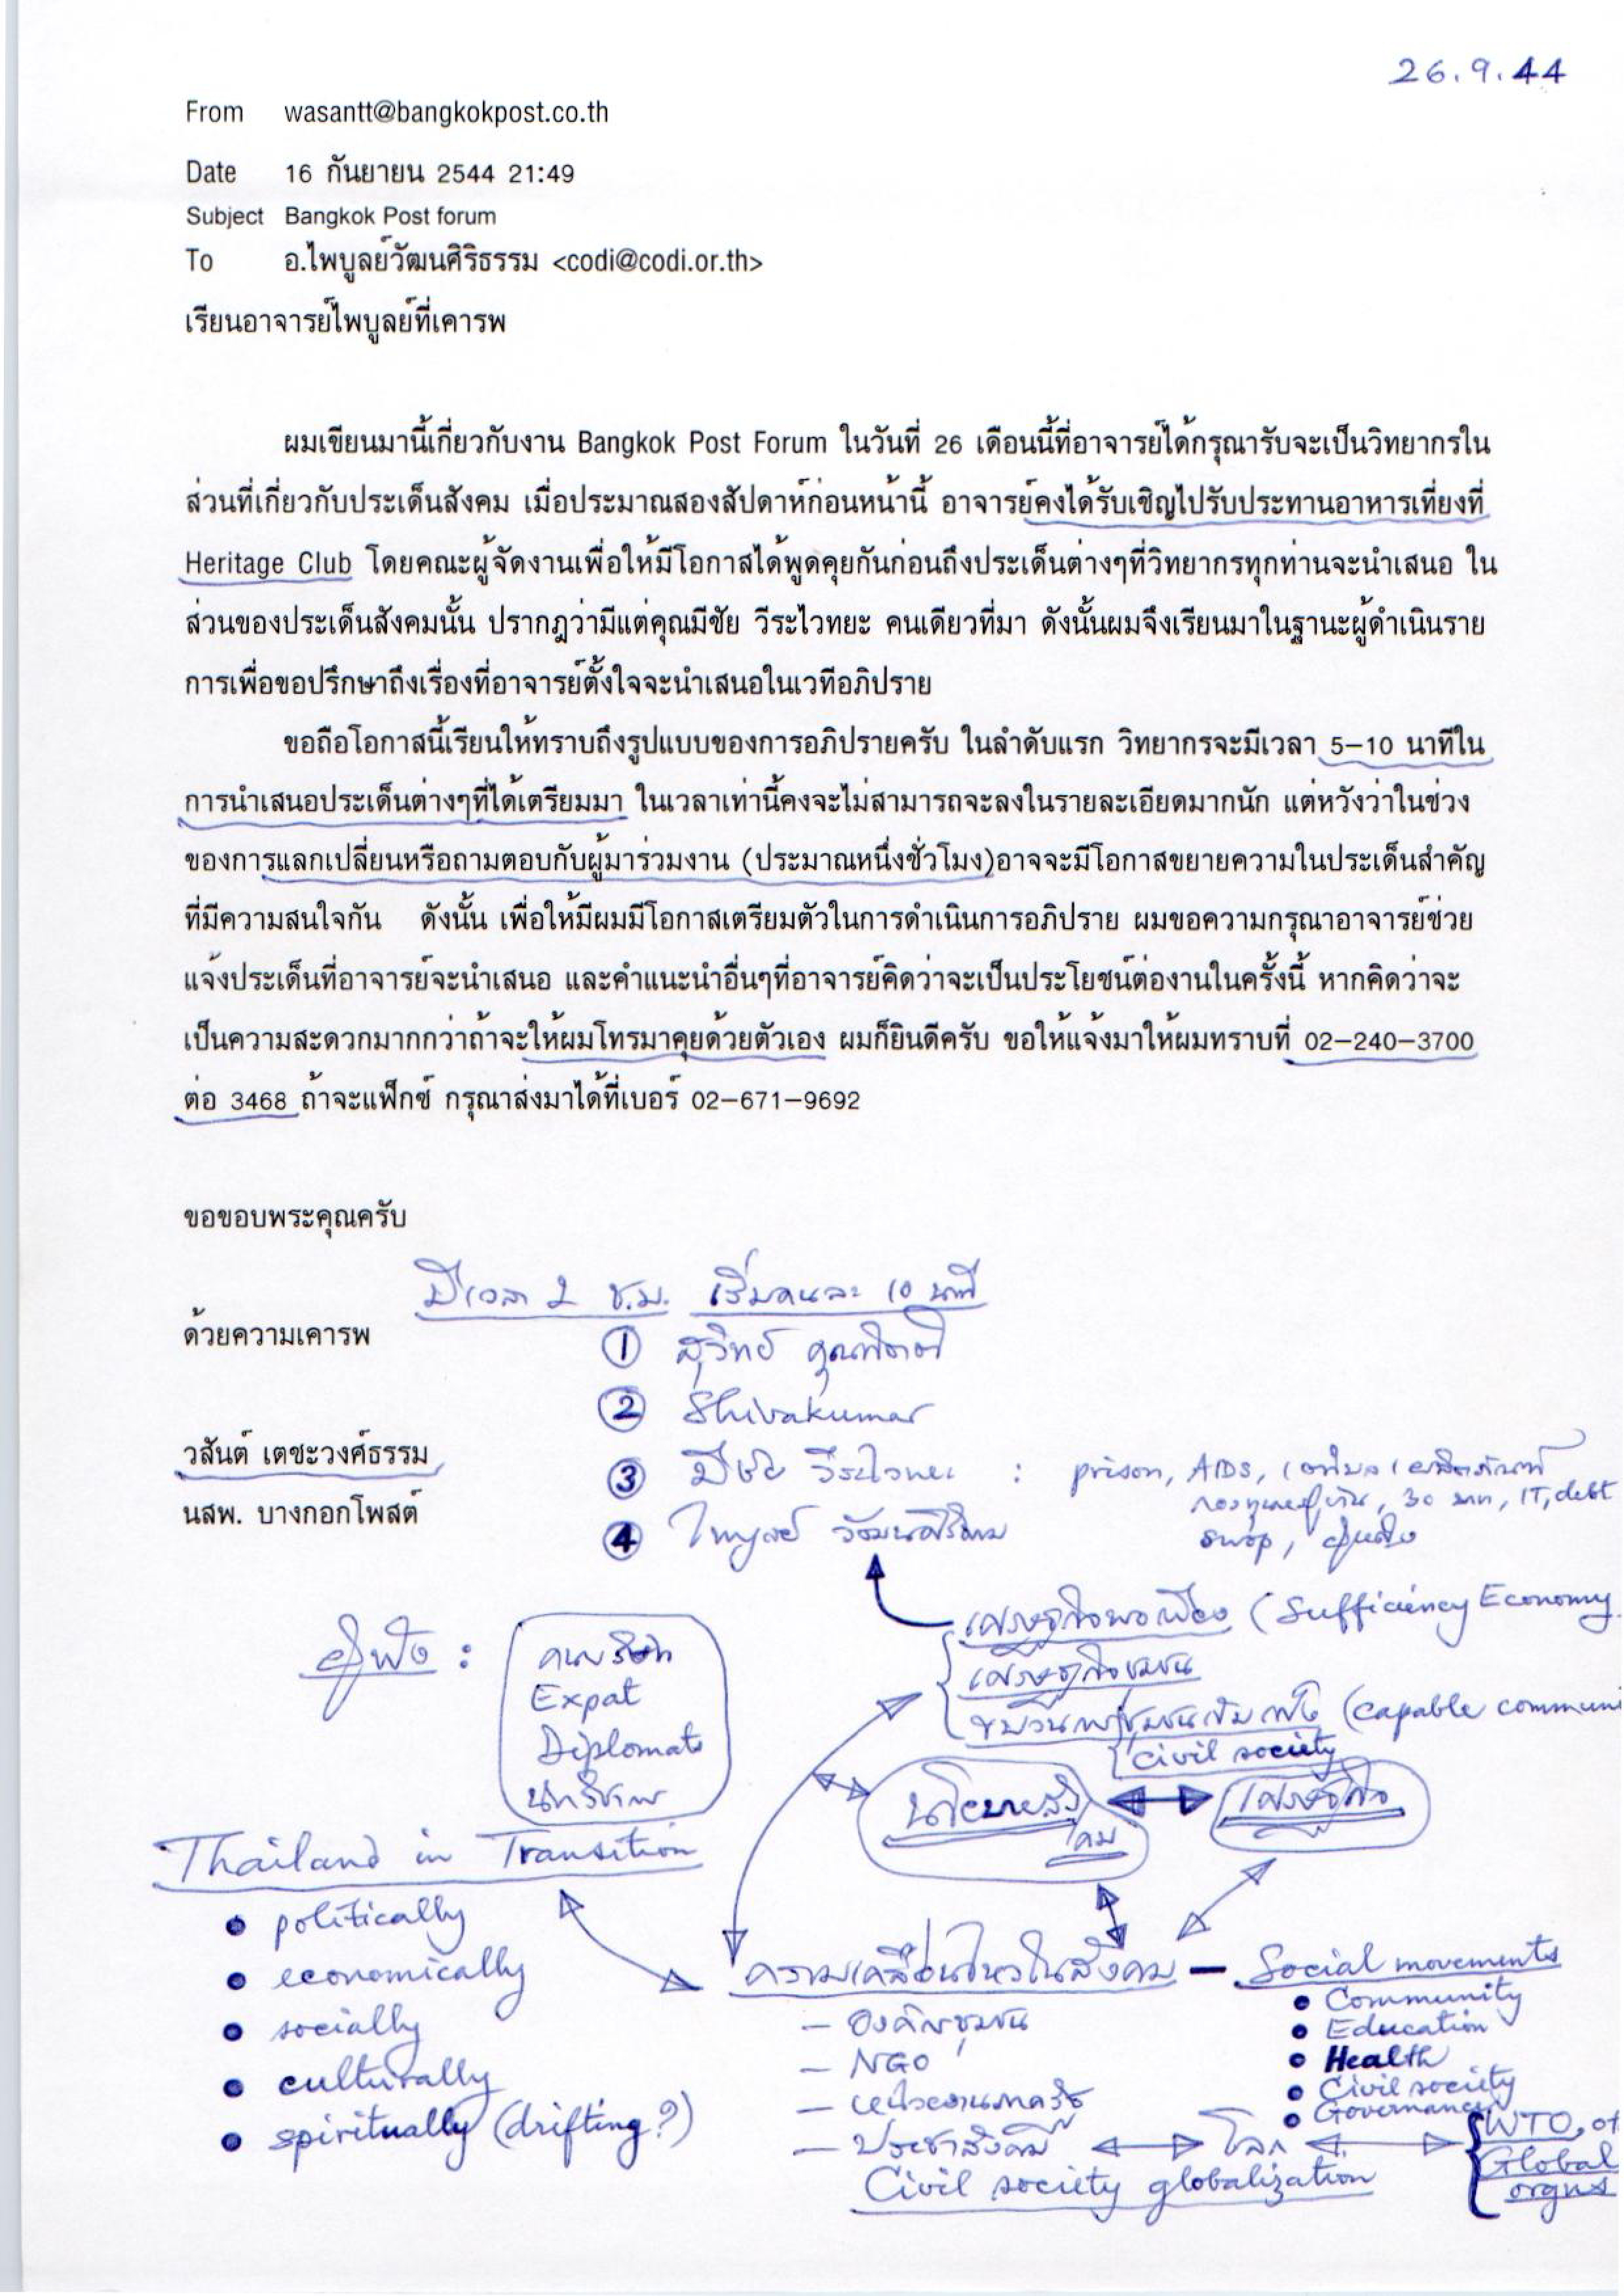 26.9.44
From wasantt@bangkokpost.co.th
Date 16 กันยายน 2544 21:49
Subject Bangkok Post forum
To อ.ไพบูลย์วัฒนศิริธรรม <codi@codi.or.th>
เรียนอาจารย์ไพบูลย์ที่เคารพ
ผมเขียนมานี้เกี่ยวกับงาน Bangkok Post Forum ในวันที่ 26 เดือนนี้ที่อาจารย์ได้กรุณารับจะเป็นวิทยากรใน
ส่วนที่เกี่ยวกับประเด็นสังคม เมื่อประมาณสองสัปดาห์ก่อนหน้านี้ อาจารย์คงได้รับเชิญไปรับประทานอาหารเที่ยงที่
Heritage Club โดยคณะผู้จัดงานเพื่อให้มีโอกาสได้พูดคุยกันก่อนถึงประเด็นต่างๆที่วิทยากรทุกท่านจะนำเสนอ ใน
ส่วนของประเด็นสังคมนั้น ปรากฎว่ามีแต่คุณมีชัย วีระไวทยะ คนเดียวที่มา ดังนั้นผมจึงเรียนมาในฐานะผู้ดำเนินราย
การเพื่อขอปรึกษาถึงเรื่องที่อาจารย์ตั้งใจจะนำเสนอในเวทีอภิปราย
ขอถือโอกาสนี้เรียนให้ทราบถึงรูปแบบของการอภิปรายครับ ในลำดับแรก วิทยากรจะมีเวลา 5–10 นาทีใน
การนำเสนอประเด็นต่างๆที่ได้เตรียมมา ในเวลาเท่านี้คงจะไม่สามารถจะลงในรายละเอียดมากนัก แต่หวังว่าในช่วง
ของการแลกเปลี่ยนหรือถามตอบกับผู้มาร่วมงาน (ประมาณหนึ่งชั่วโมง)อาจจะมีโอกาสขยายความในประเด็นสำคัญ
ที่มีความสนใจกัน ดังนั้น เพื่อให้มีผมมีโอกาสเตรียมตัวในการดำเนินการอภิปราย ผมขอความกรุณาอาจารย์ช่วย
แจ้งประเด็นที่อาจารย์จะนำเสนอ และคำแนะนำอื่นๆที่อาจารย์คิดว่าจะเป็นประโยชน์ต่องานในครั้งนี้ หากคิดว่าจะ
เป็นความสะดวกมากกว่าถ้าจะให้ผมโทรมาคุยด้วยตัวเอง ผมก็ยินดีครับ ขอให้แจ้งมาให้ผมทราบที่ 02–240–3700
ต่อ 3468 ถ้าจะแฟ็กซ์ กรุณาส่งมาได้ที่เบอร์ 02–671–9692
ขอขอบพระคุณครับ
มีเวลา 2 ช.ม. เริ่มคนละ 10 นาที
ด้วยความเคารพ
① สุวิทย์ คุณกิตติ
② Shivakumar
วสันต์ เตชะวงศ์ธรรม
③ มีชัย วีระไวทยะ : prison, AIDS,
30 บาท, IT, debt
swap,
นสพ. บางกอกโพสต์
④ ไพบูลย์ วัฒนศิริธรรม
เศรษฐกิจพอเพียง (Sufficiency Economy
เศรษฐกิจชุมชน
ขบวนการชุมชนเข้มแข็ง (capable commun
civil society
ผู้ฟัง :
คนบริษัท
Expat
Diplomats
นักวิชาการ
นโยบายสังคม
เศรษฐกิจ
Thailand in Transition
• politically
• economically
• socially
• culturally
• spiritually (drifting?)
ความเคลื่อนไหวในสังคม – Social movements
– องค์กรชุมชน
– NGO
– หน่วยงานภาครัฐ
– ประชาสังคม
โลก
Civil society globalization
• Community
• Education
• Health
• Civil society
• Governance
WTO, ot
Global
orgns